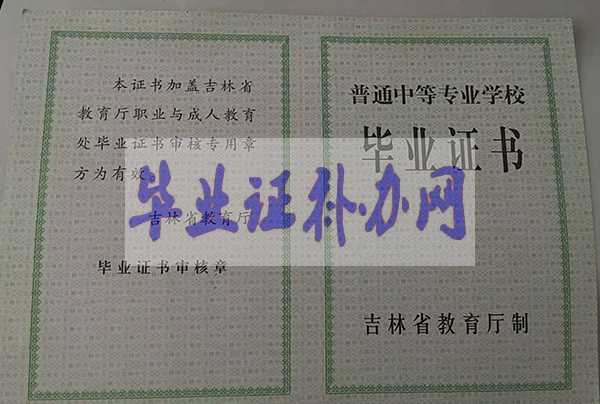 本证书加盖吉林省
教育厅职业与成人教育
处毕业证书审核专用章
方为有效。
吉林省教育厅
毕业证书审核章
普通中等专业学校
毕业证书
吉林省教育厅制
毕业证补办网